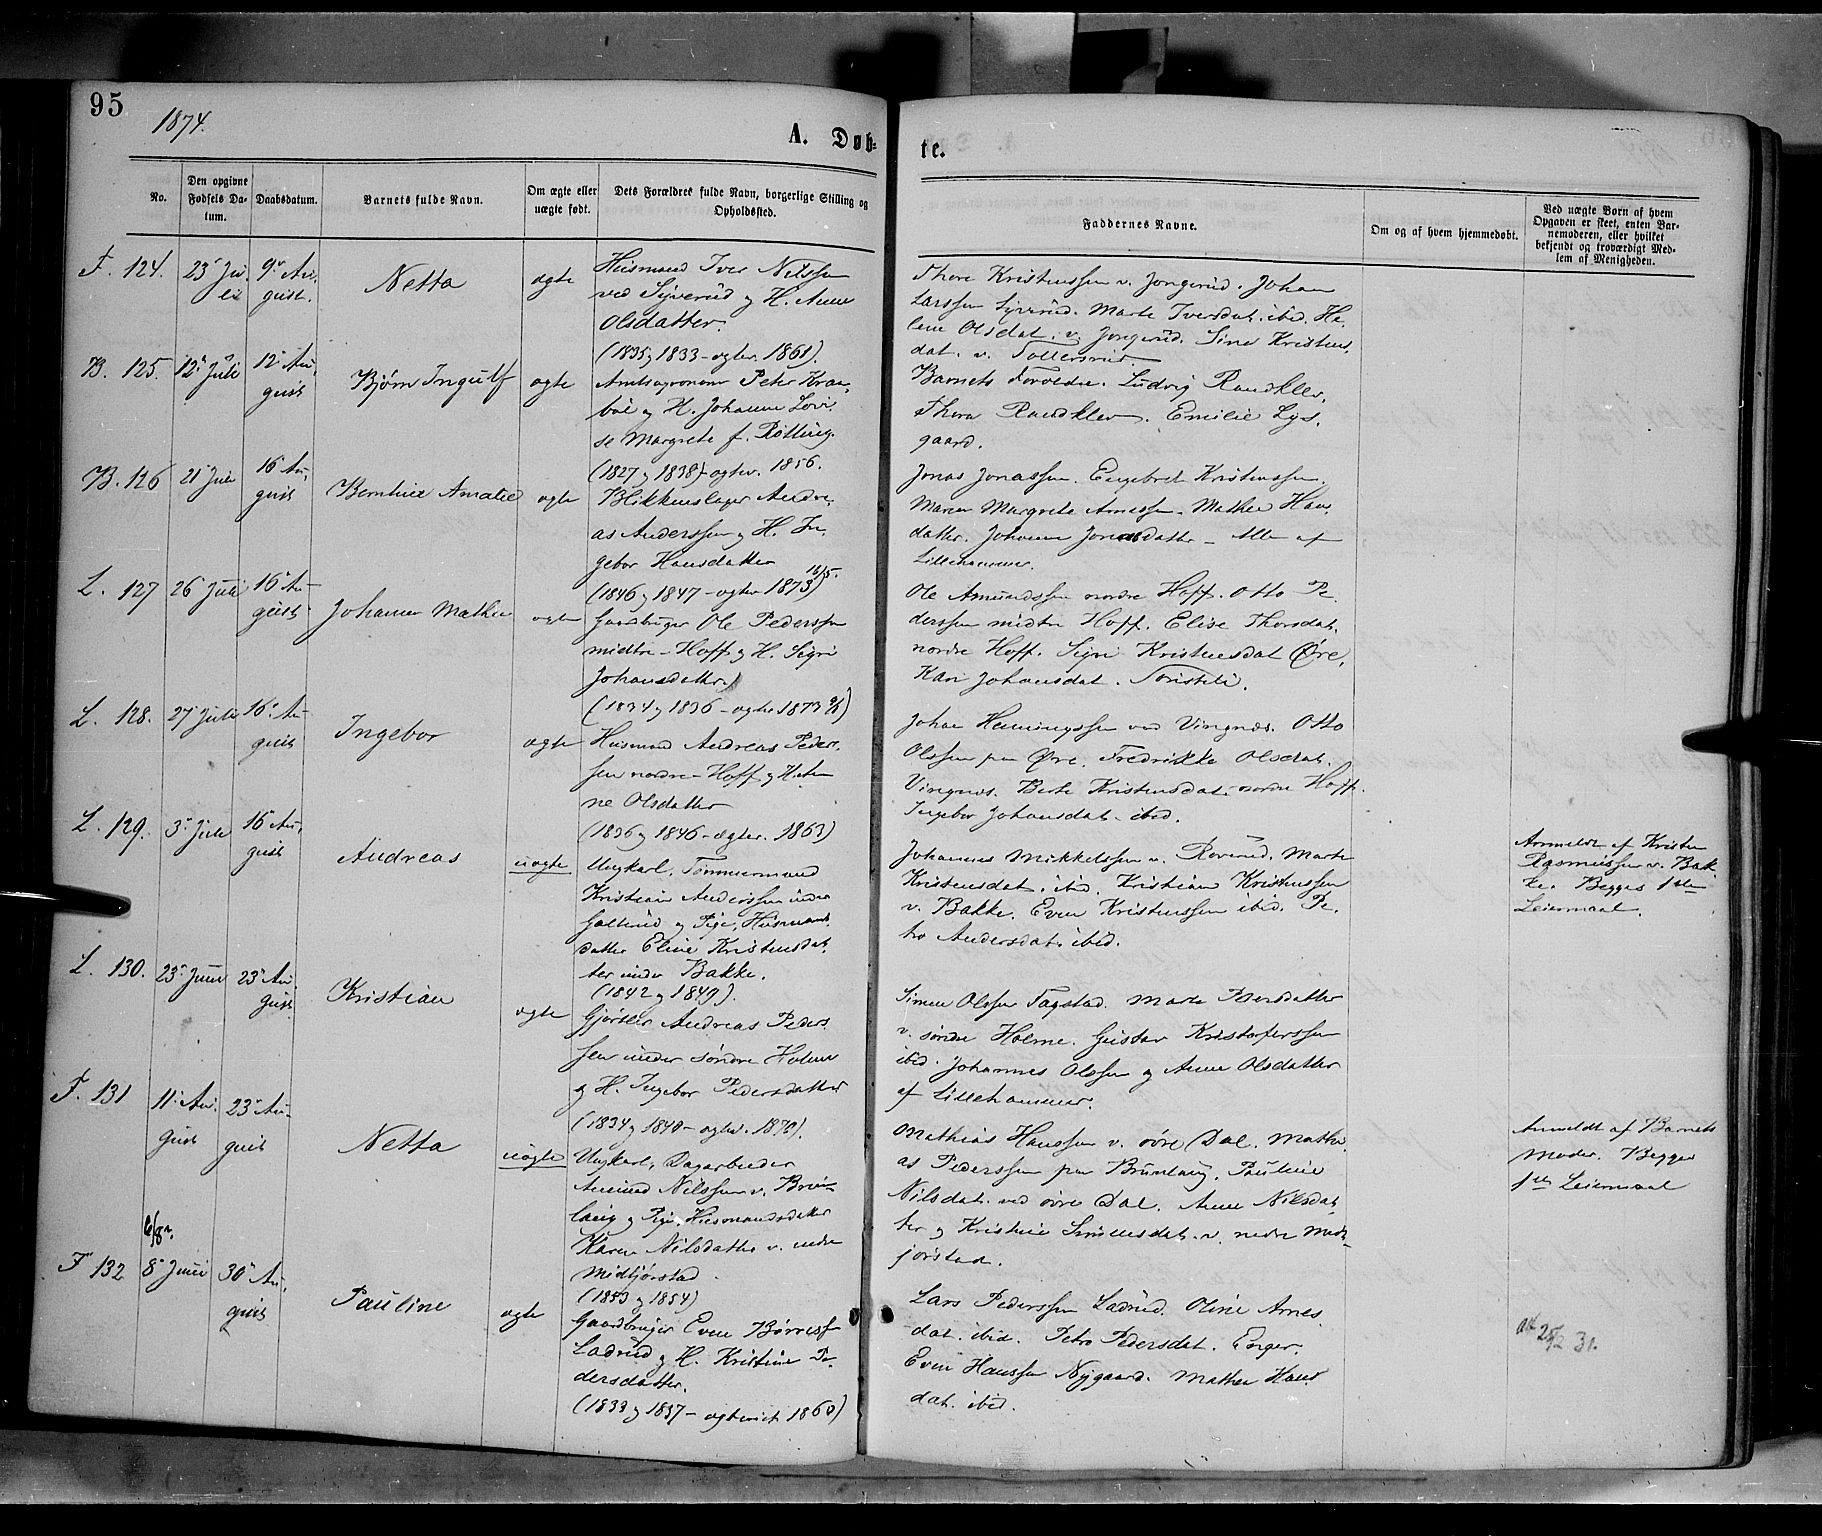 95
1874.
A. Døb-
te.
No.
Den opgivne
Fødsels Da-
tum.
Daabsdatum.
Barnets fulde Navn.
Om ægte eller
uægte født.
Dets Forældres fulde Navn, borgerlige Stilling og
Opholdssted.
Faddernes Navne.
Om og af hvem hjemmedøbt.
Ved uægte Børn af hvem
Opgaven er skeet, enten Bar-
nemoderen, eller hvilket
bekjendt og troværdigt Med-
lem af Menigheden.
F. 124. 23' Ju-
li
9' Au-
gust.
Netta
ægte
Husmand Iver Nilssen
ved Syverud og H. Anne
Olsdatter.
(1835 og 1833 - ægtev. 1861).
Thore Kristenssen v. Jongerud. Johan
Larssen Syverud. Marte Iversdat. ibid. He-
lene Olsdat. v. Jongerud. Sine Kristens.
dat. v. Tollersrud
B. 125. 12' Juli
12' Au-
gust
Bjørn Ingulf
ægte
Amtsagronom Peter Kra-
bøl og H. Johanne Lovi-
se Margrete f. Røtting.
(1827 og 1838) - ægtev. 1856.
Barnets Forældre. Ludvig Randklev.
Thora Randklev. Emilie Lys-
gaard.
B. 126 21' Juli
16' Au-
gust
Bernhine Amalie
ægte
Blikkenslager Andre-
as Anderssen og H. In-
gebor Hansdatter
(1846 og 1847 - ægtev 1873)
Jonas Jonassen. Engebret Kristenssen.
Maren Margrete Arnessen. Mathea Hans
datter. Johanne Jonasdatter - Alle af
Lillehammer.
L. 127 26' Juli
16' Au-
gust
Johanne Mathea
ægte
Gaardbruger Ole Pederssen
midtre-Hoff og H. Sigri
Johansdatter
(1834 og 1836 - ægtev 1873)
Ole Amundssen nordre Hoff. Otto Pe-
derssen midtre Hoff. Elise Thorsdat.
nordre Hoff. Sigri Kristensdat Øre.
Kari Johansdat.
L. 128. 27' Juli
16' Au-
gust
Ingebor
ægte
Husmand Andreas Peder-
sen nordre-Hoff og H. An-
ne Olsdatter
(1836 og 1846 - ægtev. 1863)
Johan Hemingssen ved Vingnæs. Otto
Olssen paa Øre. Fredrikke Olsdat.
Vingnæs. Berte Kristensdat. nordre Hoff.
Ingebor Johansdat. ibid.
L. 129. 3' Juli
16' Au-
gust
Andreas
uægte
Ungkarl, Tømmermand
Kristian Anderssen under
og Pige, Husmands
datter Eline Kristensdat-
ter under Bakke.
(1842 og 1849).
Johannes Mikkelssen v. Roverud. Marte
Kristensdat. ibid. Kristian Kristenssen
v. Bakke. Even Kristenssen ibid. Pe-
tra Andersdat. ibid.
Anmeldt af Kristen
Rasmussen v. Bak-
ke. Begges 1ste
Leiermaal.
L. 130. 23' Juni
23' Au-
gust
Kristian
ægte
Gjørtler Andreas Peders-
sen under søndre Holme
og H. Ingebor Pedersdatter
(1834 og 1840 - ægtev. 1870).
Simen Olssen Fagstad. Marte Pedersdatter
v. søndre Holme. Gustav Kristoferssen
ibid. Johannes Olssen og Anne Olsdatter
af Lillehammer.
F. 131 11' Au-
gust
23' Au-
gust
Netta
uægte
Ungkarl, Dagarbeider
Amund Nilssen v. Brun-
laug og Pige, Husmandsdatter
Karen Nilsdatter v. nedre
Midtjørstad.
(1853 og 1854)
Mathias Hanssen v. øvre Dal. Mathi-
as Pederssen paa Brunlaug. Pauline
Nilsdat. ved øvre Dal. Anne Nilsdat-
ter og Kristine Simensdat. v. nedre Midt-
jørstad.
Anmeldt af Barnets
Moder. Begges
1ste Leiermaal
F 132 8' Juni
30' Au-
gust
Pauline
ægte
Gaardbruger Even Børressen
Ladrud og H. Kristine Pe-
dersdatter.
(1833 og 1837 - ægteviet 1860)
Lars Pederssen Ladrud. Oline Arnes-
dat. ibid. Petra Pedersdat. Enger.
Even Hanssen Nygaard. Mathea Hans
dat. ibid.